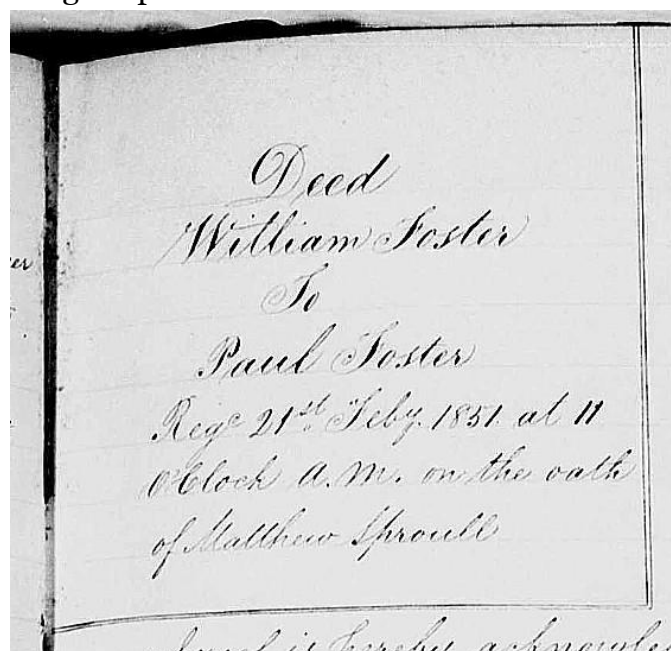 Deed
William Foster
To
Paul Foster
Regd 21st Feby. 1851. at 11
O'Clock A.M. on the oath
of Matthew Sproull
is hereby acknowle